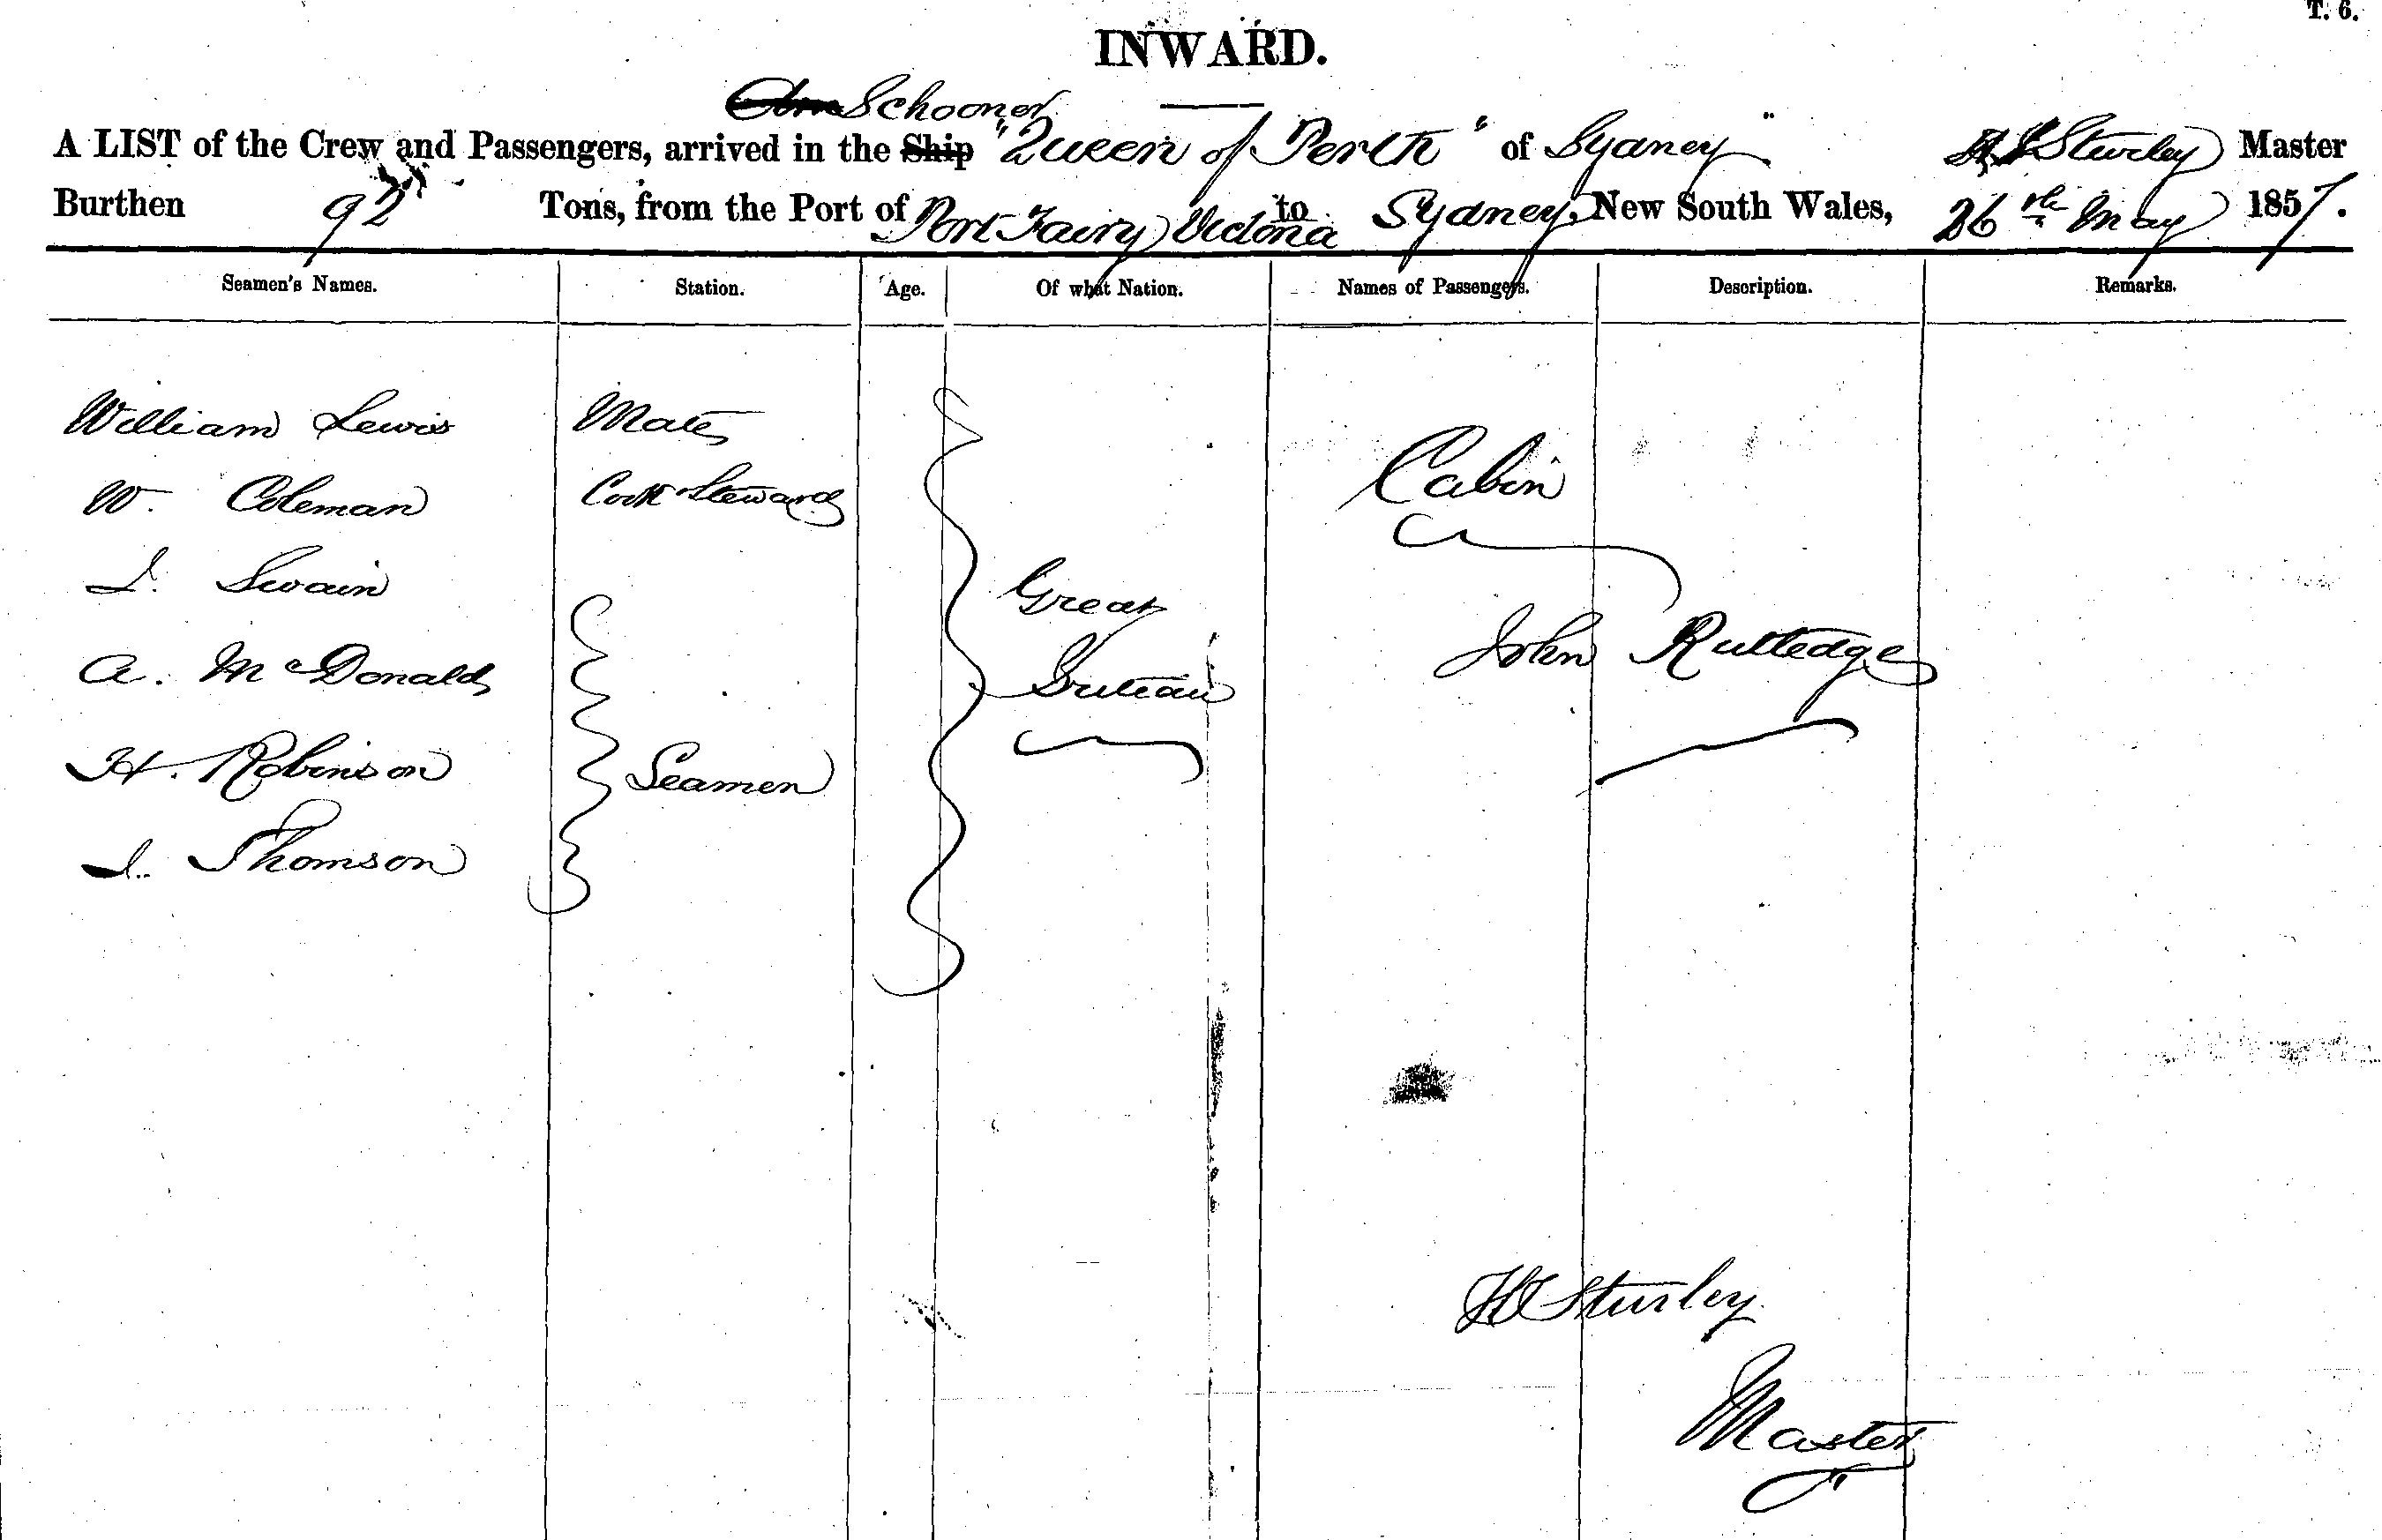 T. 6.
INWARD.
Schooner
A LIST of the Crew and Passengers, arrived in the Ship "Queen of Perth" of Sydney Sturley Master
Burthen 92 Tons, from the Port of Port Fairy Victoria to Sydney, New South Wales, 26th May 1857.
Seamen's Names. Station. Age. Of what Nation. Names of Passengers. Description. Remarks.
William Lewis Mate
W. Coleman Cook Steward Cabin
J. Swain Great
A. McDonald Britain John Rutledge
H. Robinson Seamen
J. Thomson
Sturley
Master